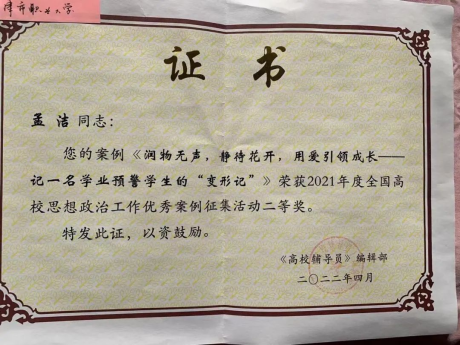 职业大学
证书
孟 洁 同志：
您的案例《润物无声，静待花开，用爱引领成长——
记一名学业预警学生的“变形记”》荣获2021年度全国高
校思想政治工作优秀案例征集活动二等奖。
特发此证，以资鼓励。
《高校辅导员》编辑部
二〇二二年四月